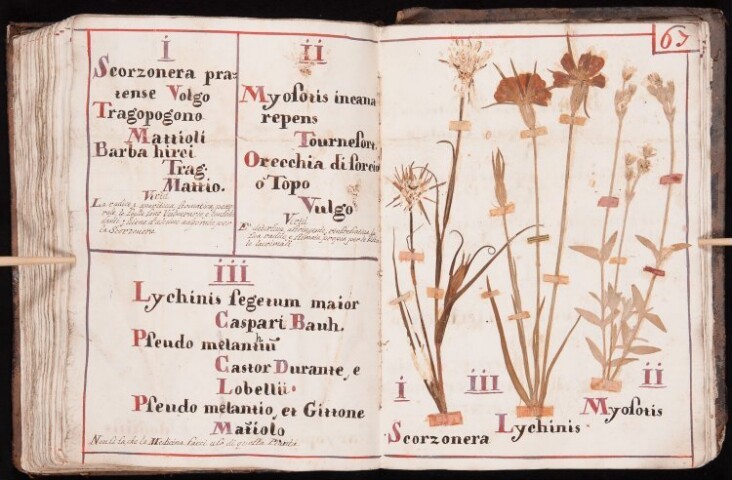 i
Scorzonera pra=
tense Volgo
Tragopogono
Mattioli
Barba hirci
Trag:
Mattio.
Virtù
La radice è
la Scorzonera
ii
Myosotis incana
repens
Tournefort.
Orecchia di sorcio
ò Topo
Vulgo
Virtù
iii
Lychinis segetum maior
Caspari Bauh.
Pseudo melanthiũ
Castor Durante, e
Lobellii.
Pseudo melantio, et Gittone
Matiolo
Non si sà che la Medicina facci uso di questa Pianta
63
i
Scorzonera
iii
Lychinis
ii
Myosotis